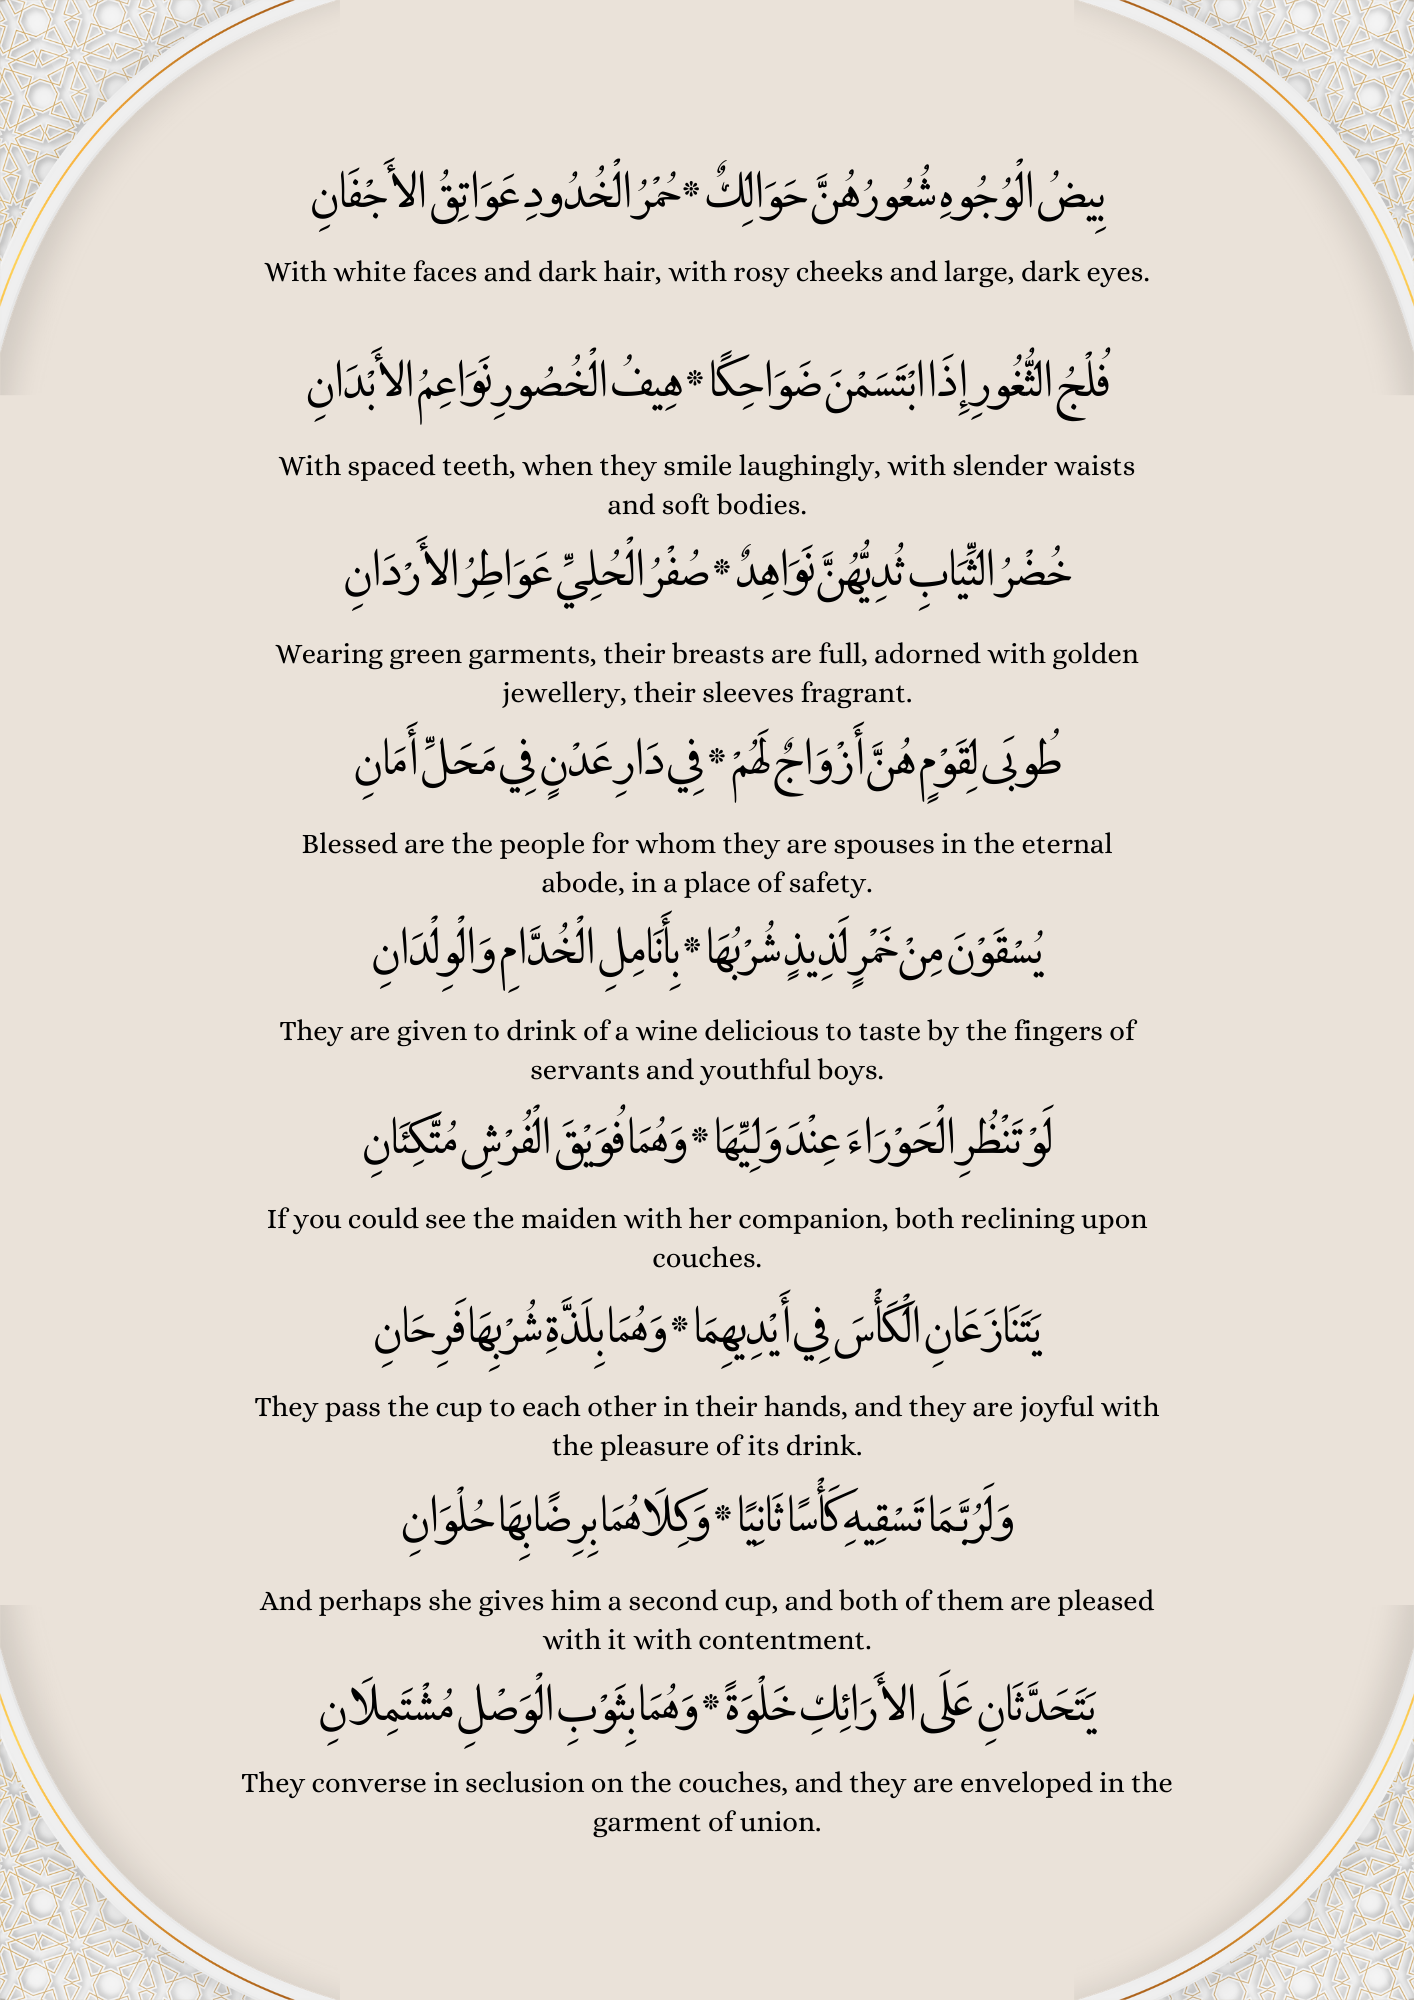 بِيضُ الْوُجُوهِ شُعُورُهُنَّ حَوَالِكٌ * حُمْرُ الْخُدُودِ عَوَاتِقُ الأَجْفَانِ
With white faces and dark hair, with rosy cheeks and large, dark eyes.
فُلْجُ الثُّغُورِ إِذَا ابْتَسَمْنَ ضَوَاحِكًا * هِيفُ الْخُصُورِ نَوَاعِمُ الأَبْدَانِ
With spaced teeth, when they smile laughingly, with slender waists
and soft bodies.
خُضْرُ الثِّيَابِ ثُدِيُّهُنَّ نَوَاهِدٌ * صُفْرُ الْحُلِيِّ عَوَاطِرُ الأَرْدَانِ
Wearing green garments, their breasts are full, adorned with golden
jewellery, their sleeves fragrant.
طُوبَى لِقَوْمٍ هُنَّ أَزْوَاجٌ لَهُمْ * فِي دَارِ عَدْنٍ فِي مَحَلِّ أَمَانِ
Blessed are the people for whom they are spouses in the eternal
abode, in a place of safety.
يُسْقَوْنَ مِنْ خَمْرٍ لَذِيذٍ شُرْبُهَا * بِأَنَامِلِ الْخُدَّامِ وَالْوِلْدَانِ
They are given to drink of a wine delicious to taste by the fingers of
servants and youthful boys.
لَوْ تَنْظُرِ الْحَوْرَاءَ عِنْدَ وَلِيِّهَا * وَهُمَا فُوَيْقَ الْفُرْشِ مُتَّكِئَانِ
If you could see the maiden with her companion, both reclining upon
couches.
يَتَنَازَعَانِ الْكَأْسَ فِي أَيْدِيهِمَا * وَهُمَا بِلَذَّةِ شُرْبِهَا فَرِحَانِ
They pass the cup to each other in their hands, and they are joyful with
the pleasure of its drink.
وَلَرُبَّمَا تَسْقِيهِ كَأْسًا ثَانِيًا * وَكِلَاهُمَا بِرِضًا بِهَا حُلْوَانِ
And perhaps she gives him a second cup, and both of them are pleased
with it with contentment.
يَتَحَدَّثَانِ عَلَى الأَرَائِكِ خَلْوَةً * وَهُمَا بِثَوْبِ الْوَصْلِ مُشْتَمِلَانِ
They converse in seclusion on the couches, and they are enveloped in the
garment of union.